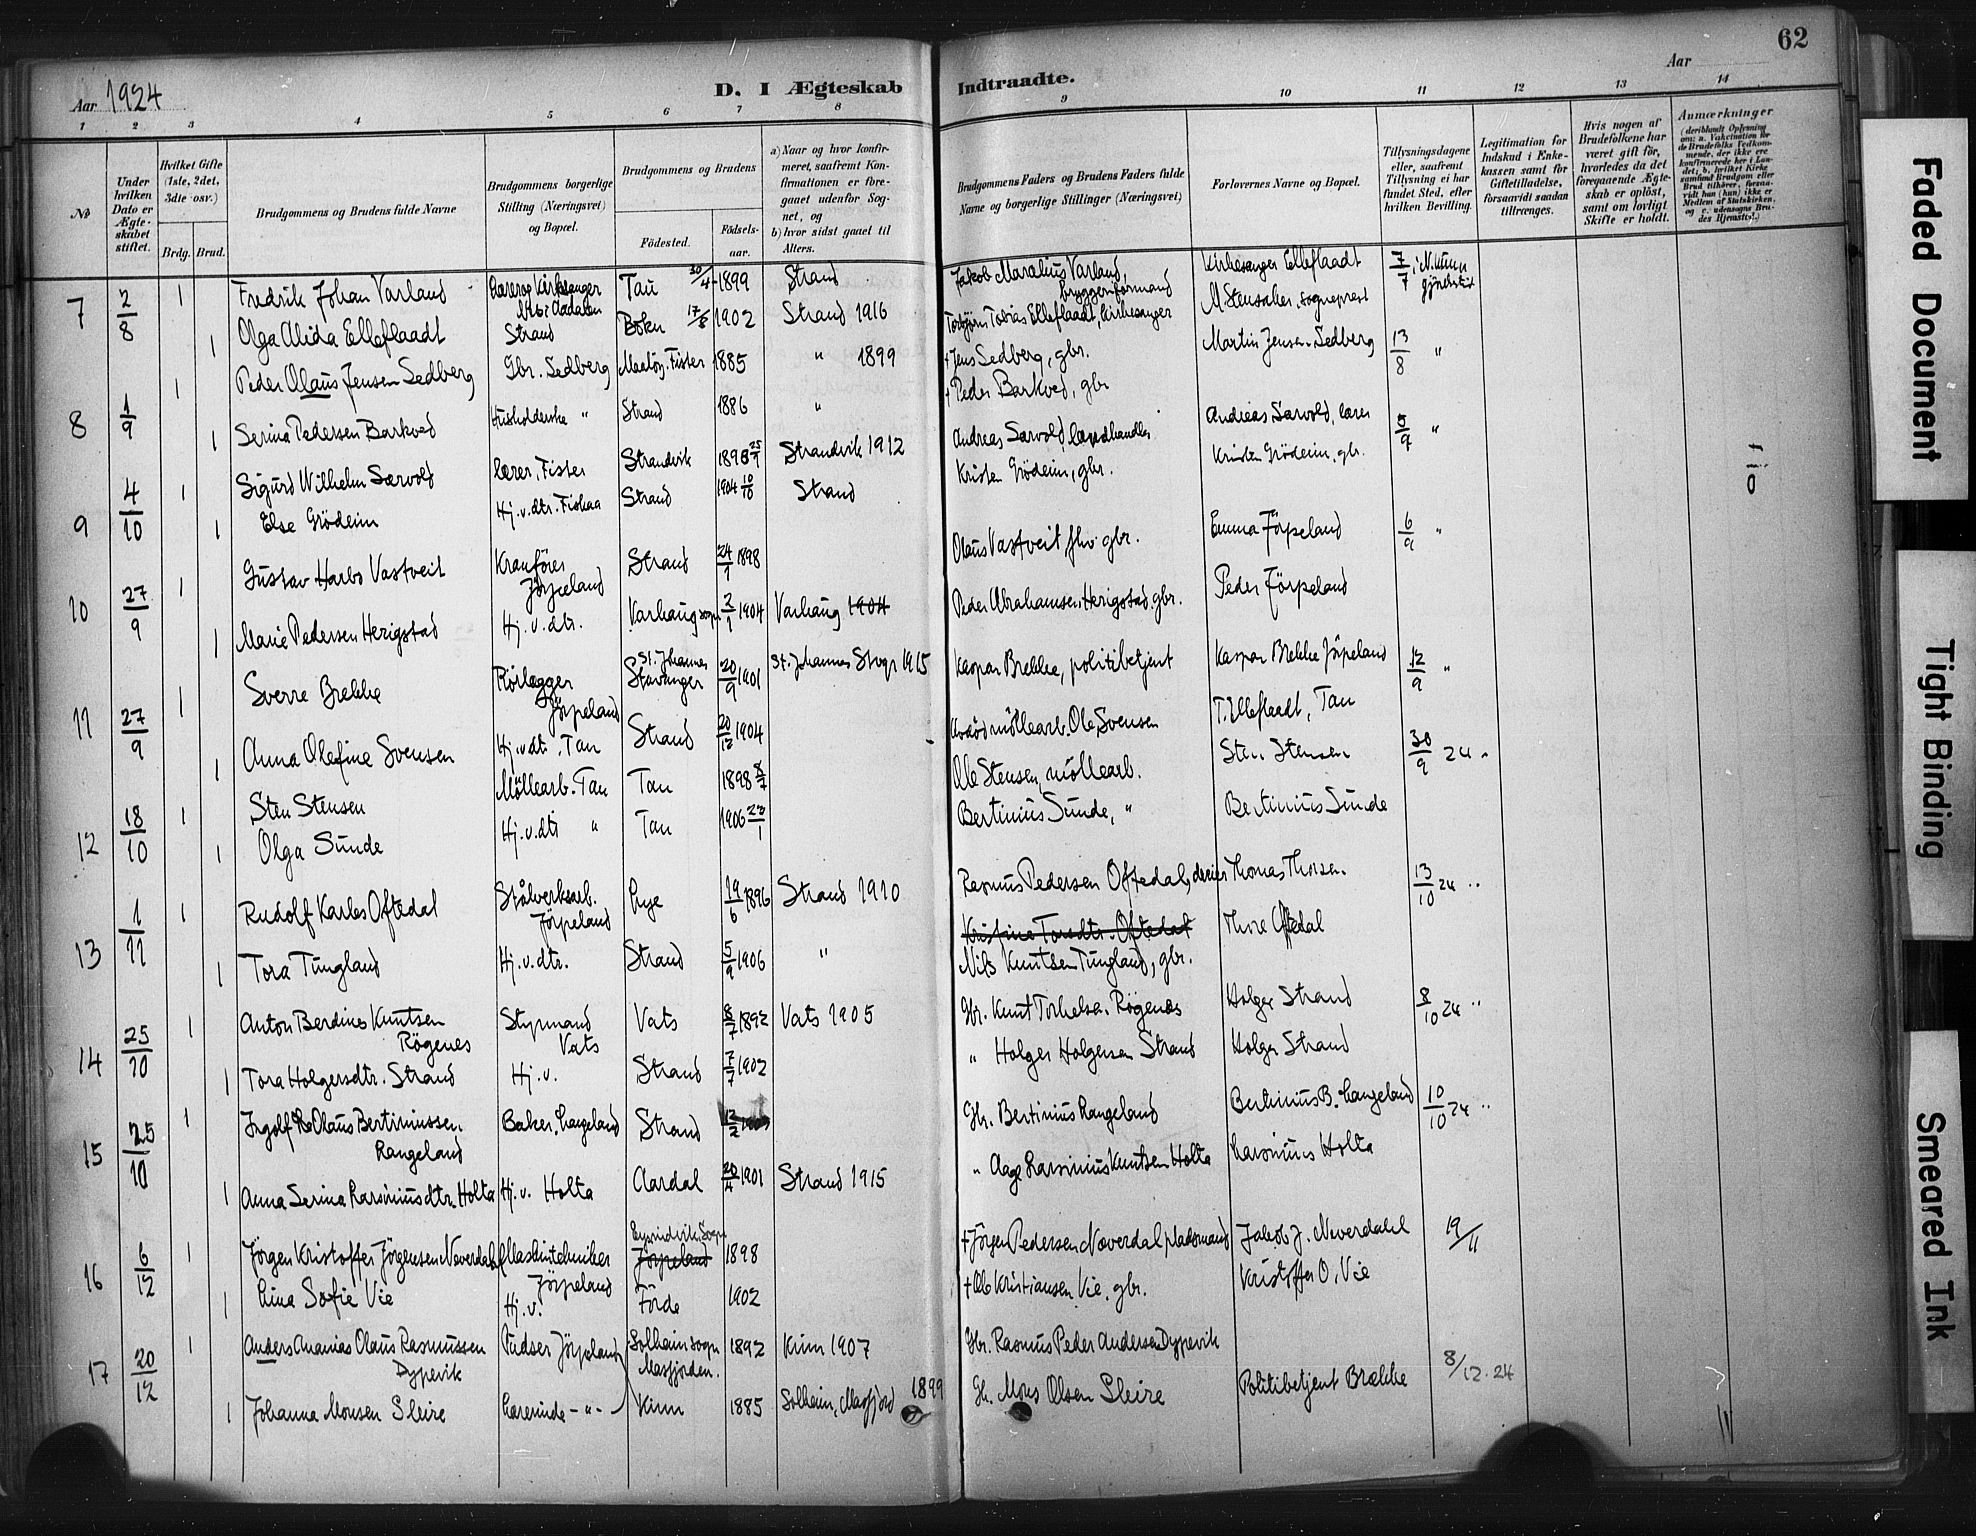 62
Aar 1924
D. I Ægteskab Indtraadte.
Aar
1 2 3 4 5 6 7 8 9 10 11 12 13 14
No
Under hvilken Dato er Ægteskabet stiftet.
Hvilket Gifte (1ste, 2det, 3die osv.)
Brdg. Brud.
Brudgommens og Brudens fulde Navne
Brudgommens borgerlige Stilling (Næringsvei) og Bopæl.
Brudgommens og Brudens
Födested. Födselsaar.
a) Naar og hvor konfirmeret, saafremt Konfirmationen er foregaaet udenfor Sognet, og
b) hvor sidst gaaet til Alters.
Brudgommens Faders og Brudens Faders fulde Navne og borgerlige Stillinger (Næringsvei)
Forlovernes Navne og Bopæl.
Tillysningsdagene eller, saafremt Tillysning ei har fundet Sted, efter hvilken Bevilling.
Legitimation for Indskud i Enkekassen samt for Giftetilladelse, forsaavidt saadan tiltrænges.
Hvis nogen af Brudefolkene har været gift för, hvorledes da det foregaaende Ægteskab er oplöst, samt om lovligt Skifte er holdt.
Anmærkninger
7 2/8 1 Fredrik Johan Varland Tau 30/4 1899 Strand Jakob Marselius Varland, bryggeriformand Kirkesanger Elleflaadt 7/7
1 Olga Alida Elleflaadt Strand Bokn 17/8 1902 Strand 1916 Torbjörn Tobias Elleflaadt, kirkesanger M. Stensaker, sogneprest
8 1/9 1 Peder Olaus Jensen Sedberg Gbr. Sedberg Fister 1885 " 1899 + Jens Sedberg, gbr. Martin Jensen Sedberg 13/8 "
1 Serina Pedersen Barkved Husholderske " Strand 1886 " + Peder Barkved, gbr
9 4/10 1 Sigurd Wilhelm Sævold Lærer, Fister Strandvik 1898 25/9 Strandvik 1912 Andreas Sævold, landhandler Andreas Sævold, lærer 5/9 "
1 Else Grödeim Hj.v.dtr. Fiskaa Strand 1904 10/10 Strand Kristen Grödeim, gbr. Kristen Grödeim, gbr.
10 27/9 1 Gustav Harbo Vastveit Kranförer Jörpeland Strand 24/1 1898 Olaus Vastveit, fhv. gbr. Emma Jörpeland 6/9 "
1 Marie Pedersen Herigstad Hj.v.dtr. Varhaug sogn 2/1 1904 Varhaug 1904 Peder Abrahamsen Herigstad, gbr. Peder Jörpeland
11 27/9 1 Sverre Brekke Rörlægger Jörpeland St. Johannes Stavanger 20/9 1901 St. Johannes Stvgr 1915 Kaspar Brekke, politibetjent Kaspar Brekke Jörpeland 12/9 "
1 Anna Olefine Svensen Hj.v.dtr. Tau Strand 20/12 1904 möllearb. Ole Svensen T. Elleflaadt, Tau
12 18/10 1 Sten Stensen Möllearb. Tau Tau 1898 8/7 Ole Stensen, möllearb. Sten Stensen 30/9 24 "
1 Olga Sunde Hj.v.dtr " Tau 1906 23/1 Bertinius Sunde, " Bertinius Sunde
13 1/11 1 Rudolf Karles Oftedal Stålverksarb. Jörpeland 19/6 1896 Strand 1910 Rasmus Pedersen Oftedal, Thomas Thorsen. 13/10 24 "
Kristine Torsdtr. Oftedal Thore Oftedal
1 Tora Tungland Hj.v.dtr. Strand 5/9 1906 " Nils Knutsen Tungland, gbr.
14 25/10 1 Anton Berdines Knutsen Rögenes Styrmand Vats Vats 8/7 1892 Vats 1905 Gbr. Knut Torkelsen Rögenes Holger Strand 8/10 24 "
1 Tora Holgersdtr. Strand Hj.v. Strand 7/7 1902 " Holger Holgersen Strand Holger Strand
15 25/10 1 Ingolf Olaus Bertiniussen Langeland Baker, Langeland Strand 12/2 Gbr. Bertinius Langeland Bertinius B. Langeland 10/10 24 "
1 Anna Serina Larsiniusdtr. Holta Hj.v. Holta Aardal 20/4 1901 Strand 1915 " Aage Larsinius Knutsen Holta Larsinius Holta
16 6/12 1 Jörgen Kristoffer Jörgensen Neverdahl Maskintekniker Jörpeland Jörpeland 1898 + Jörgen Pedersen Næverdal pladsmand Jakob J. Neverdahl 19/11
1 Lina Sofie Vie Hj.v. Förde 1902 + Ole Kristiansen Vie, gbr. Kristoffer O. Vie
17 20/12 1 Anders Ananias Olaus Rasmussen Dypevik Pudser Jörpeland Solheim sogn Masfjorden. 1892 Kinn 1907 Gbr. Rasmus Peder Andersen Dypevik
1 Johanna Monsen Sleire Lærerinde - " - Kinn 1885 Solheim, Masfjord 1899 Gb. Mons Olsen Sleire Politibetjent Brække 8/12-24
Faded Document
Tight Binding
Smeared Ink